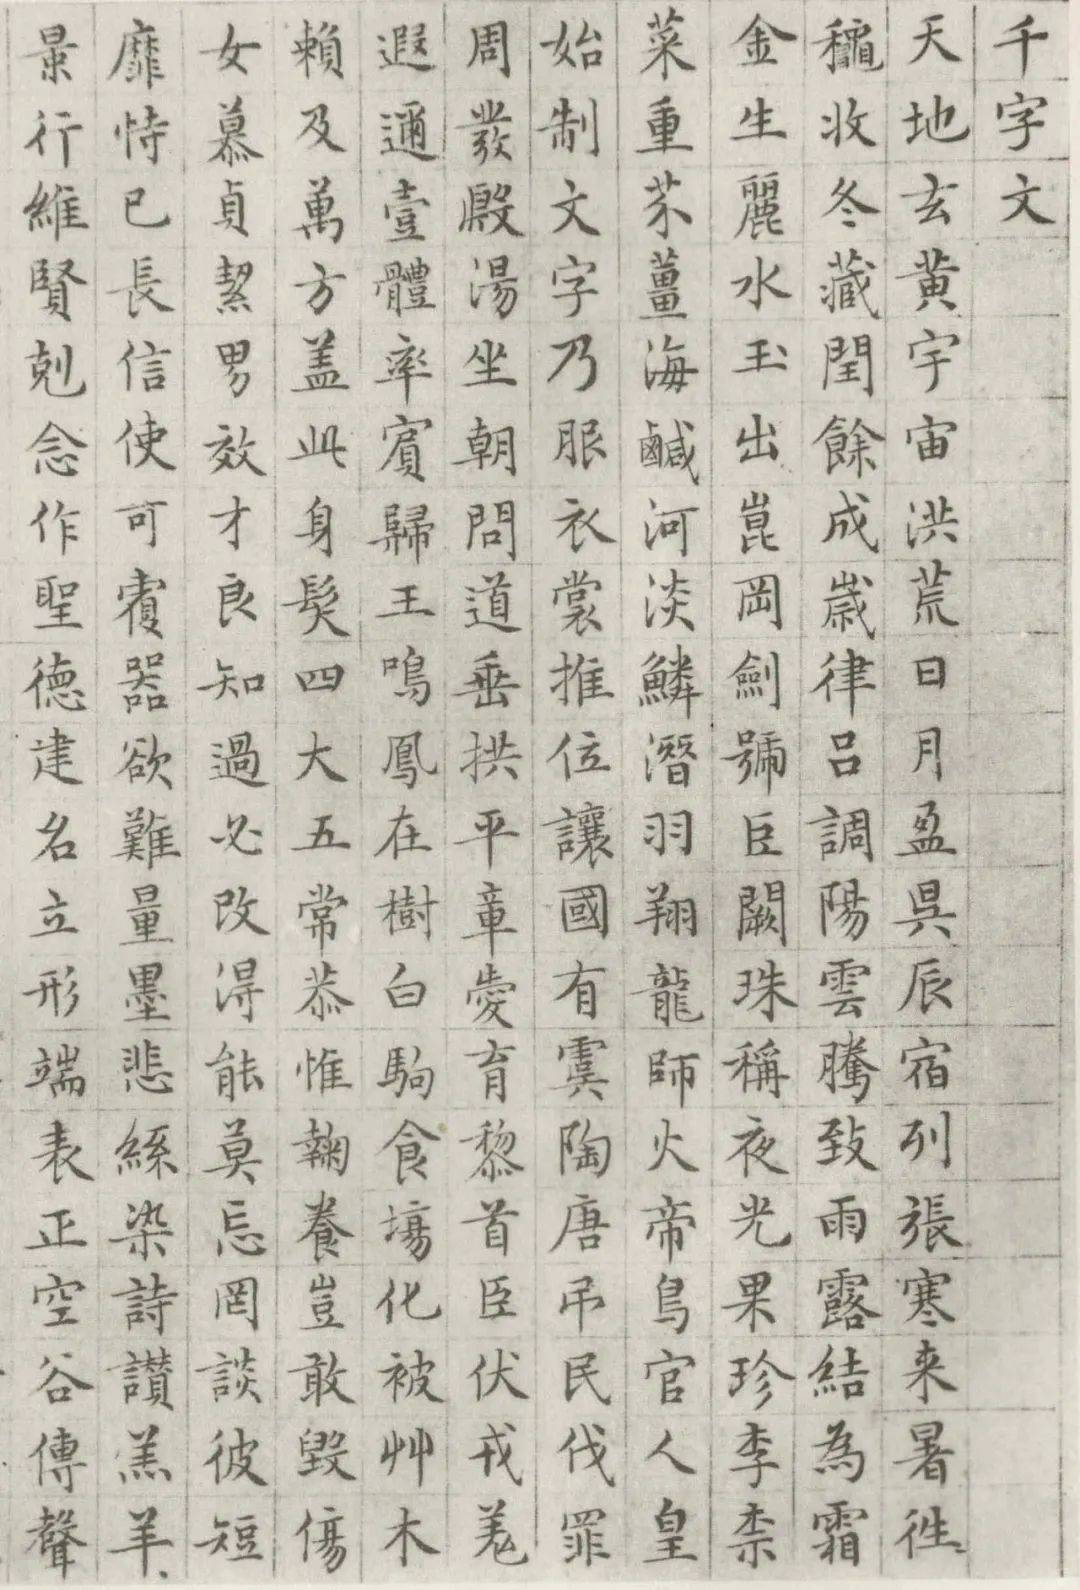 千字文
天地玄黄宇宙洪荒日月盈昃辰宿列張寒来暑往
穐收冬藏閏餘成歲律呂調陽雲騰致雨露結為霜
金生麗水玉出崑岡劍號臣闕珠稱夜光果珍李柰
菜重芥薑海鹹河淡鱗潛羽翔龍師火帝鳥官人皇
始制文字乃服衣裳推位讓國有虞陶唐吊民伐罪
周發殷湯坐朝問道垂拱平章愛育黎首臣伏戎羌
遐邇壹體率賓歸王鳴鳳在樹白駒食場化被艸木
賴及萬方盖此身髮四大五常恭惟鞠養豈敢毀傷
女慕貞絜男效才良知過必改得能莫忘罔談彼短
靡恃己長信使可覆器欲難量墨悲絲染詩讃羔羊
景行維賢剋念作聖德建名立形端表正空谷傳聲